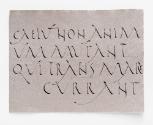 CAELUM NON ANIM
UM MUTANT
QUI TRANS MARE
CURRANT